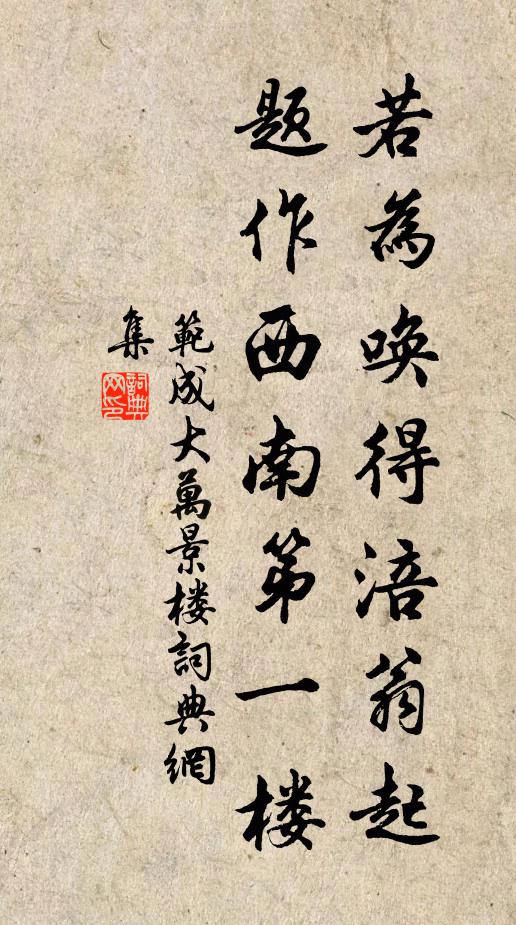 若為唤得涪翁起
题作西南第一楼
範成大萬景楼詞典網
集
詞典
网印